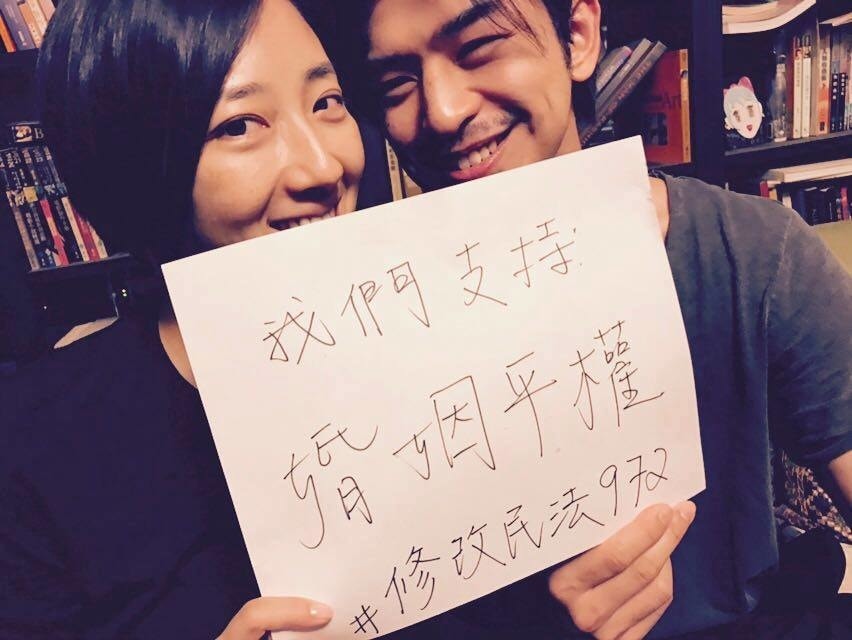 我們支持
婚姻平權
#修改民法972